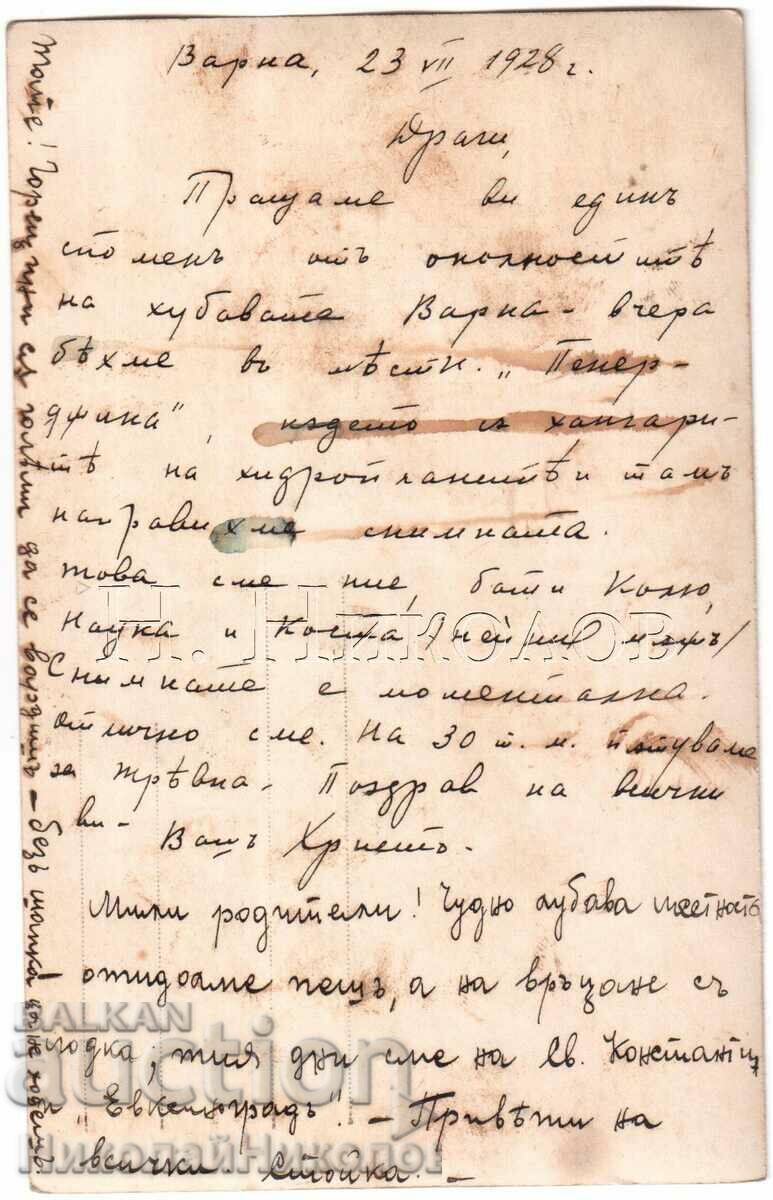 Варна, 23 VII 1928 г.
Драги,
Пращаме ви единъ
споменъ отъ околноститѣ
на хубавата Варна - вчера
бѣхме въ мѣстн. „Пейнер-
джика", кѫдето сѫ хангари-
тѣ на хидропланитѣ и тамъ
направихме снимката.
това сме ние, бати Колю,
и Коста /нейния мѫжъ/
Снимката е моментална.
Отлично сме. На 30 т. м. пѫтуваме
за Трѣвна. Поздрав на всички
ви - Вашъ Христъ.
Мили родители! Чудно хубава местность
отидоаме пешъ, а на връщане съ
лодка; тия дни сме на Св. Константинъ
и „Евксиноградъ". - Привѣти на
всички. Стойка. -
Горещини сѫ голѣми да се - безъ шапка да не ходешъ
Н. Николов
BALKAN
auction
НиколайНиколов